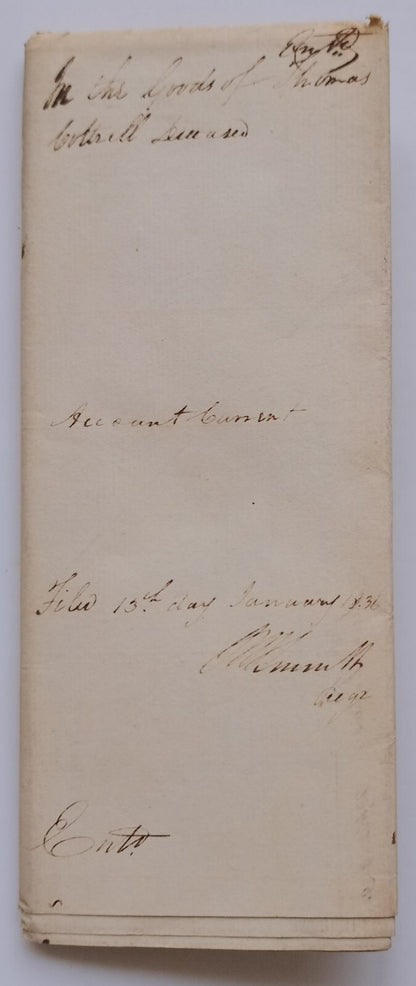 In the Goods of Thomas
Cottrill Deceased
Account Current
Filed 13th day January 1836
Regr
Entd.